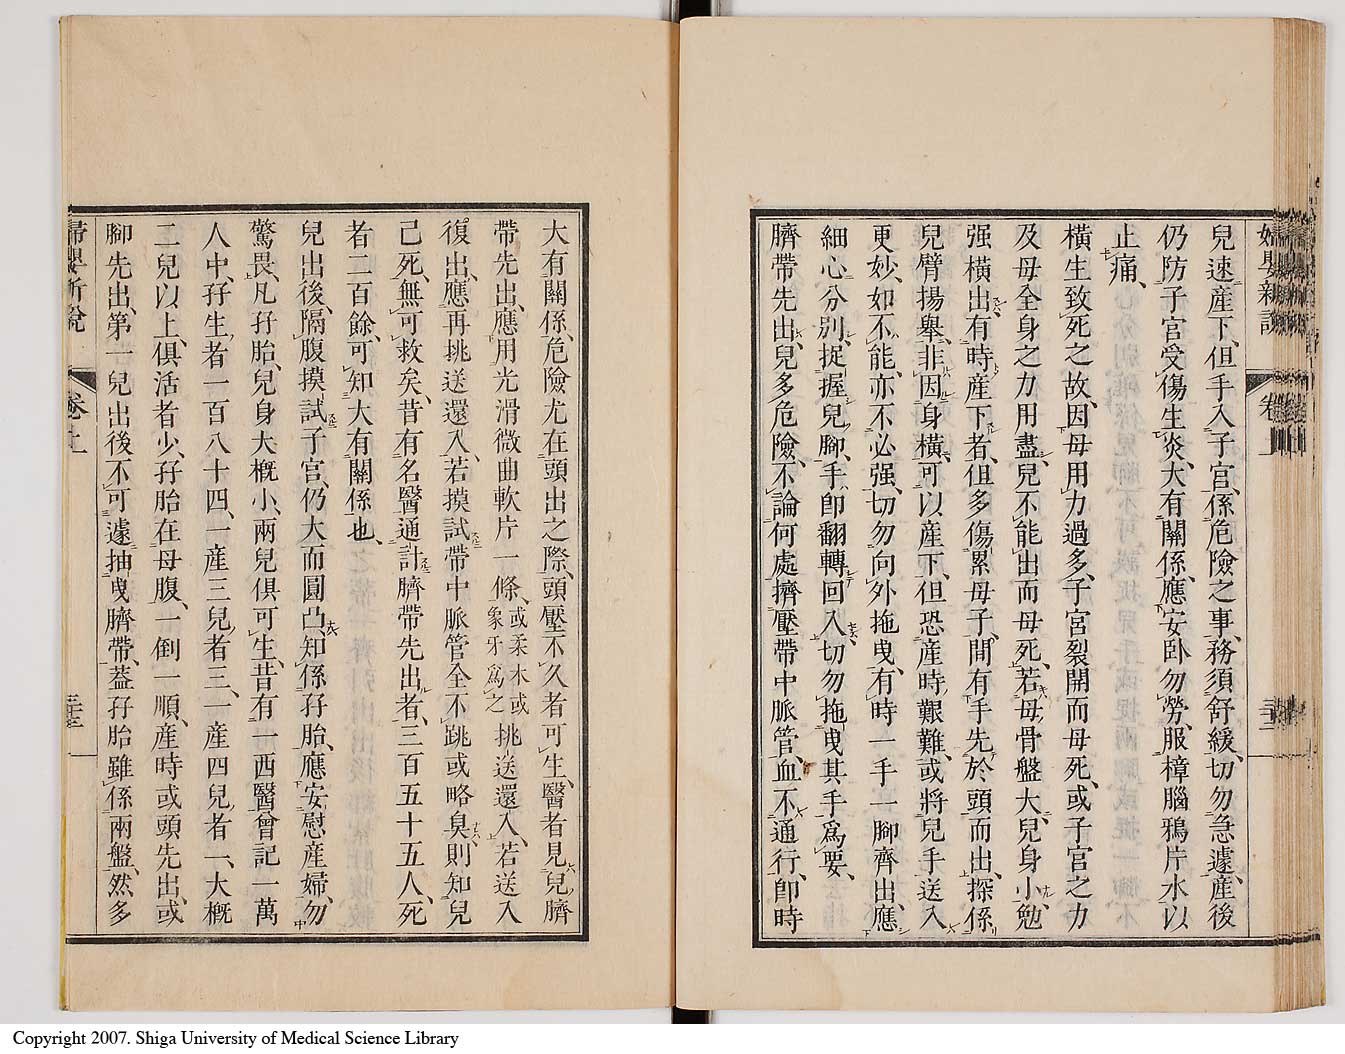 婦嬰新說 卷上
兒速產下、但手入子宮、係危險之事、務須舒緩、切勿急遽、產後
仍防子宮受傷生炎、大有關係、應安卧勿勞、服樟腦鴉片水以
止痛、
橫生致死之故、因母用力過多、子宮裂開而母死、或子宮之力
及母全身之力用盡、兒不能出而母死、若母骨盤大、兒身小、勉
强橫出、有時產下者、但多傷累母子、間有手先於頭而出、探係
兒臂揚舉、非因身橫、可以產下、但恐產時艱難、或將兒手送入
更妙、如不能、亦不必强、切勿向外拖曳、有時一手一腳齊出、應
細心分別、捉握兒腳、手卽翻轉回入、切勿拖曳其手爲要、
臍帶先出、兒多危險、不論何處擠壓帶中脈管、血不通行、卽時
大有關係、危險尤在頭出之際、頭壓不久者可生、醫者見兒臍
帶先出、應用光滑微曲軟片一條、或柔木或象牙爲之挑送還入、若送入
復出、應再挑送還入、若摸試帶中脈管全不跳或略臭、則知兒
已死、無可救矣、昔有名醫通計臍帶先出者、三百五十五人、死
者二百餘、可知大有關係也、
兒出後、隔腹摸試子宮、仍大而圓凸、知係孖胎、應安慰產婦、勿
驚畏、凡孖胎、兒身大槪小、兩兒俱可生、昔有一西醫曾記一萬
人中、孖生者一百八十四、一產三兒者三、一產四兒者一、大槪
二兒以上、俱活者少、孖胎在母腹、一倒一順、產時或頭先出、或
腳先出、第一兒出後、不可遽抽曳臍帶、蓋孖胎雖係兩盤、然多
婦嬰新說 卷上
Copyright 2007. Shiga University of Medical Science Library